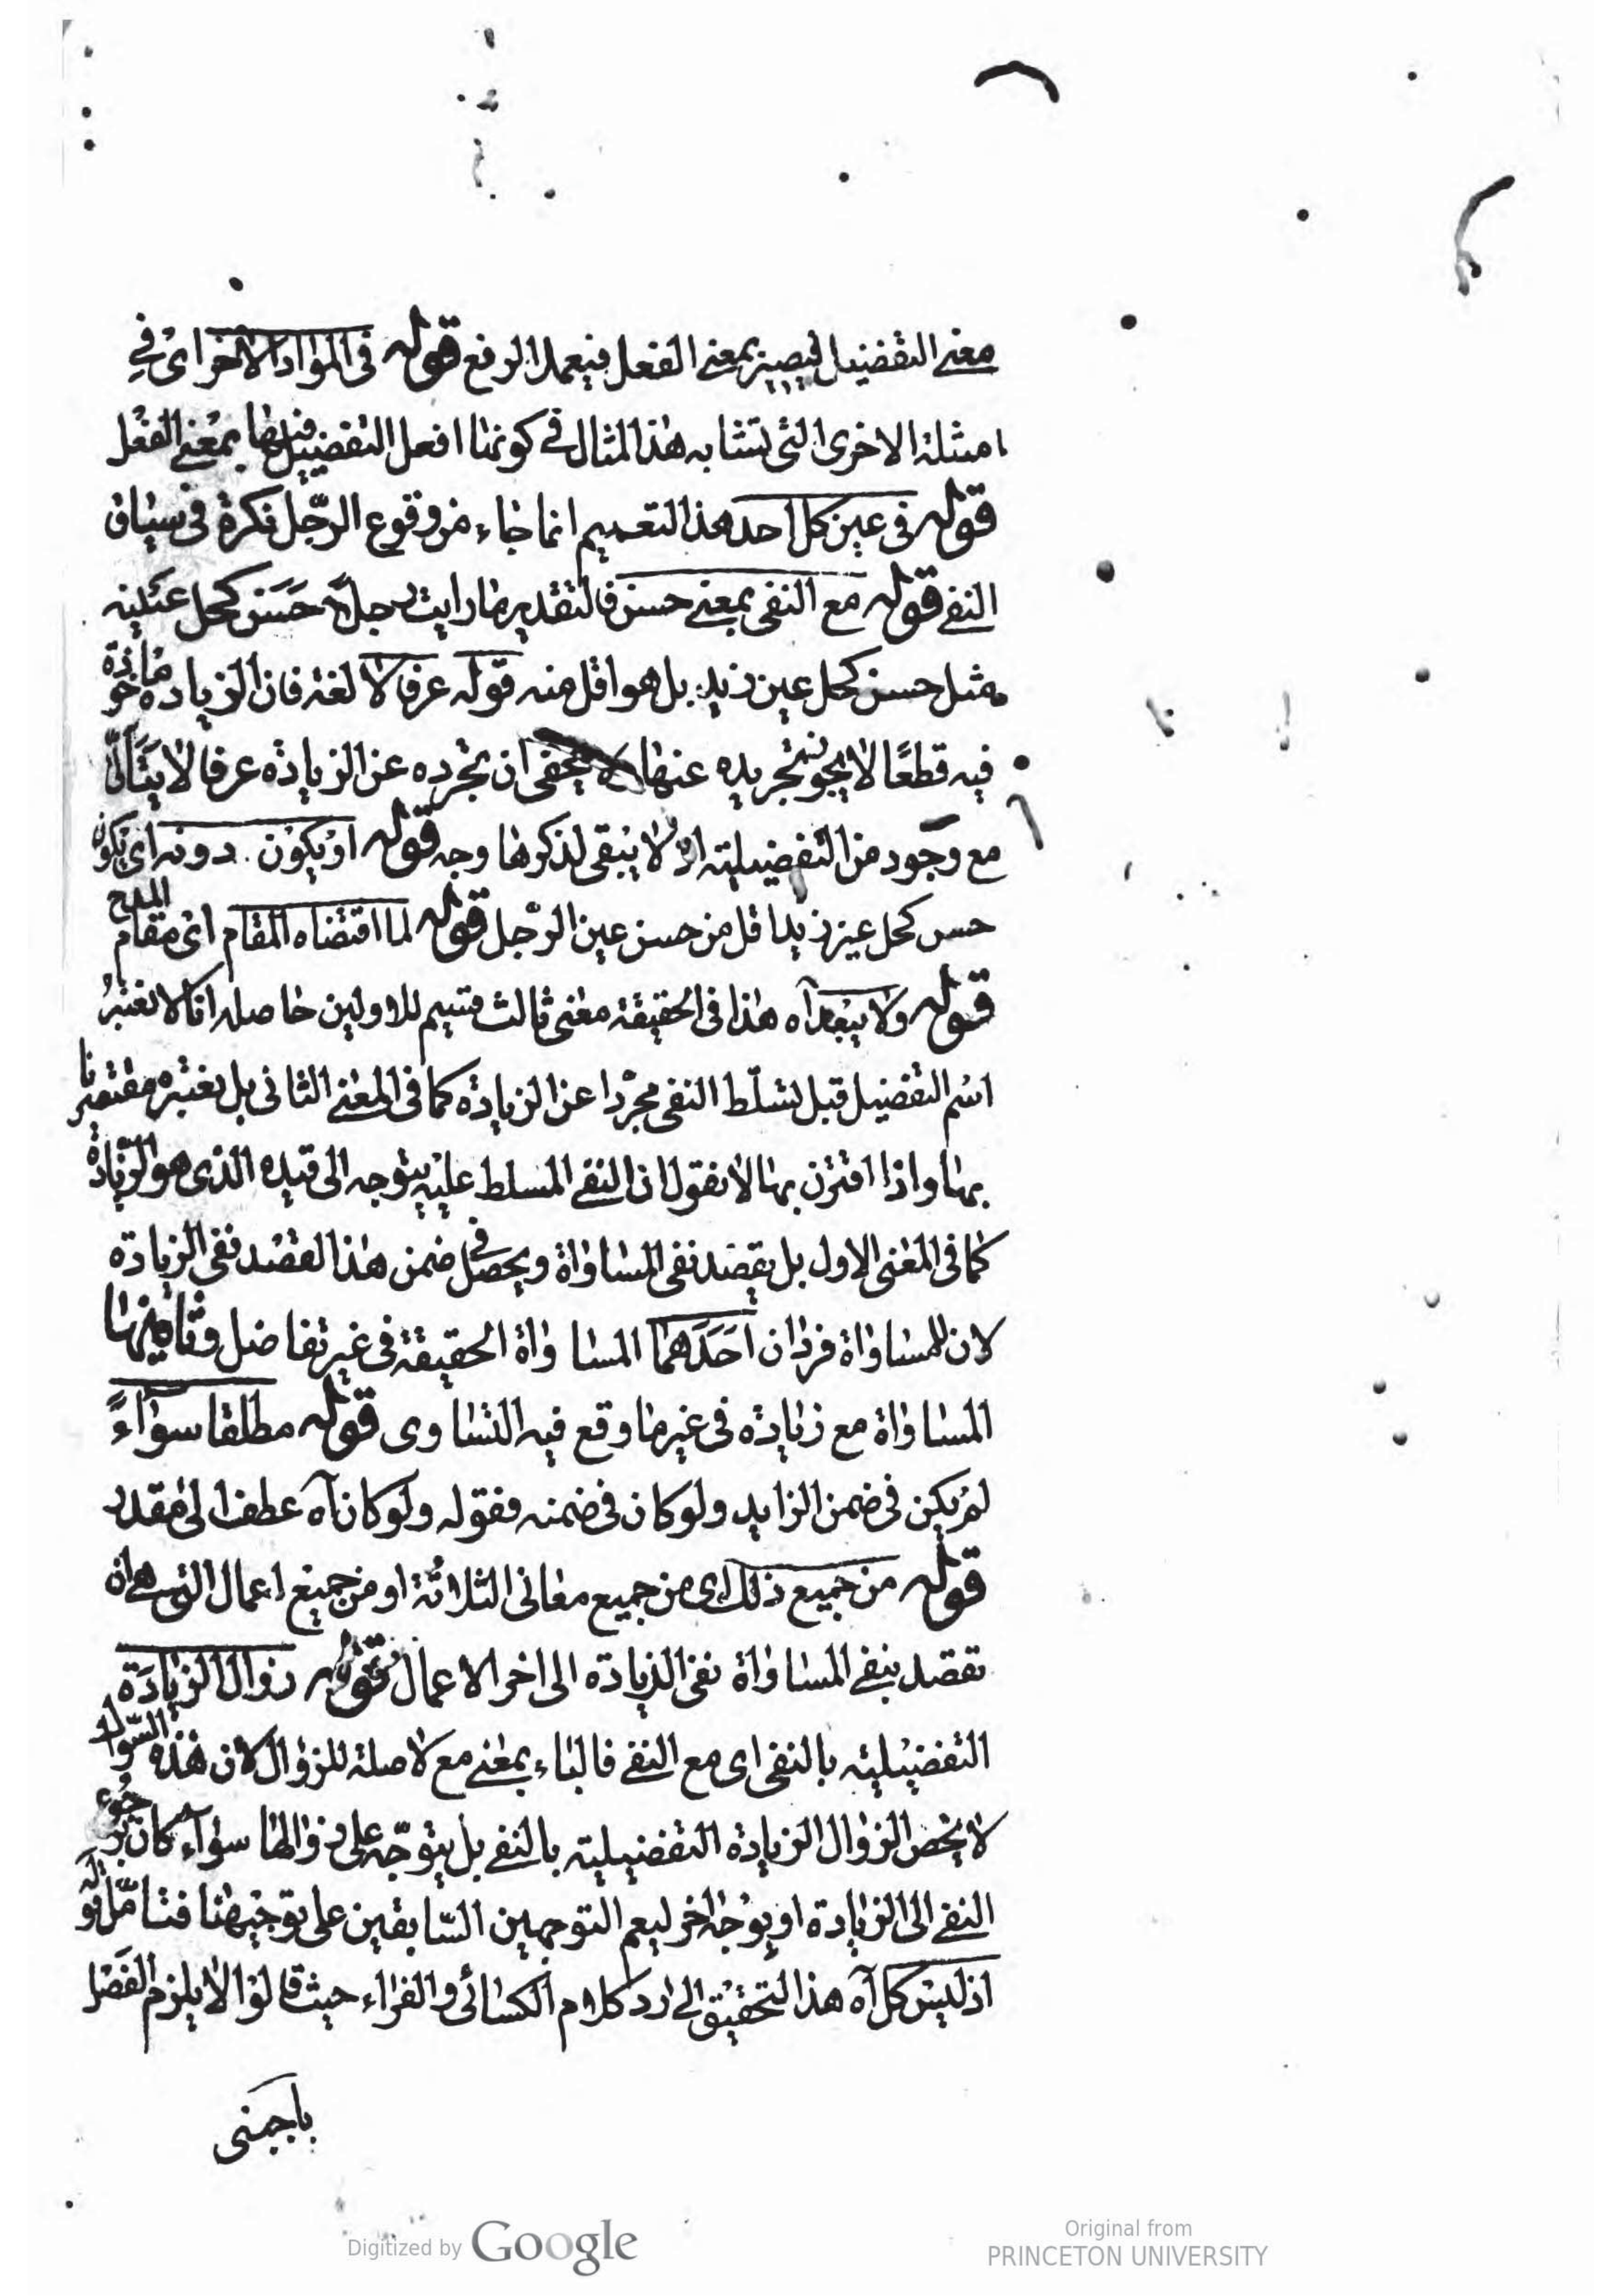 معنى التفضيل فيصير بمعنى الفعل فيعمل الرفع قوله فى المواد الاخر اى في
امثلة الاخرى التى تتشابه هذا المثال فى كونها افعل التفضيل فيها بمعنى الفعل
قوله فى عين كل احد هذا التعميم انما جاء من وقوع الرجل نكرة فى سياق
النفى قوله مع النفى بمعنى حسن فالتقدير ما رايت رجلا حسن كحل عينيه
مثل حسن كحل عين زيد بل هو اقل منه قوله عرفا لا لغة فان الزيادة ماخوذة
فيه قطعًا لا يجوز تجريده عنها لا يخفى ان تجرده عن الزيادة عرفا لا يتاتى
مع وجود من التفضيلية اذ لا يبقى لذكرها وجه قوله او يكون دونه اى يكون
حسن كحل عين زيد اقل من حسن عين الرجل قوله لما اقتضاه المقام اى مقام المدح
قوله ولا يبعد آه هذا فى الحقيقة معنى ثالث قسيم للاولين حاصله انا لا نعتبر
اسم التفضيل قبل تسلّط النفى مجردا عن الزيادة كما فى المعنى الثانى بل نعتبره مقترنا
بها واذا اقترن بها لا نقول ان النفى المسلط عليه يتوجه الى قيده الذى هو الزيادة
كما فى المعنى الاول بل نقصد نفى المساواة ويحصل فى ضمن هذا القصد نفى الزيادة
لان للمساواة فردان احدهما المساواة الحقيقة فى غير تفاضل وثانيهما
المساواة مع زيادة فى غير ما وقع فيه التساوى قوله مطلقا سواءً
لم يكن فى ضمن الزايد ولو كان فى ضمنه فقوله ولو كان آه عطف الى مقدر
قوله من جميع ذلك اى من جميع معانى الثلاثة او من جميع اعمال التى هى ان
تقصد بنفى المساواة نفى الزيادة الى اخر الاعمال قوله زوال الزيادة
التفضيلية بالنفى اى مع النفى فالباء بمعنى مع لا صلة للزوال لان هذه السؤال
لا يخص الزوال الزيادة التفضيلية بالنفى بل يتوجّه على زوالها سواء كان برجوع
النفى الى الزيادة او بوجه اخر ليعم التوجهين السّابقين على توجيهنا فتامّل قوله
اذ ليس كل آه هذا التحقيق الى رد كلام الكسائى والفراء حيث قالوا لا يلزم الفصل